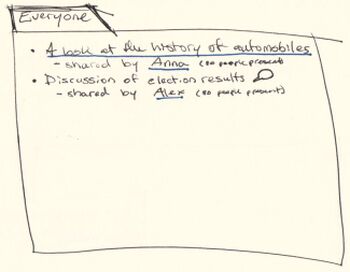 Everyone
• A look at the history of automobiles
- shared by Anna (80 people present)
• Discussion of election results
- shared by Alex (80 people present)